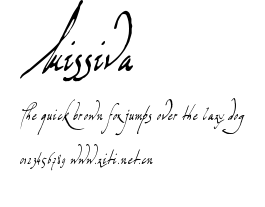 luissiva
The quick brown fox jumps over the lazy dog
0123456789 www.ziti.net.cn